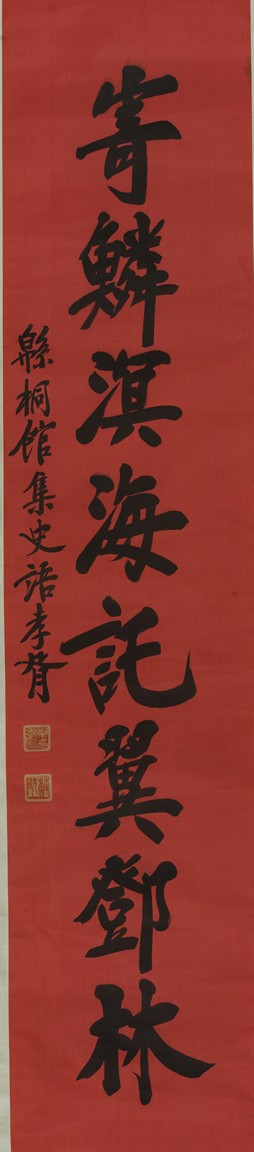 寄鱗溟海託翼鄧林
緜桐館集史語孝胥